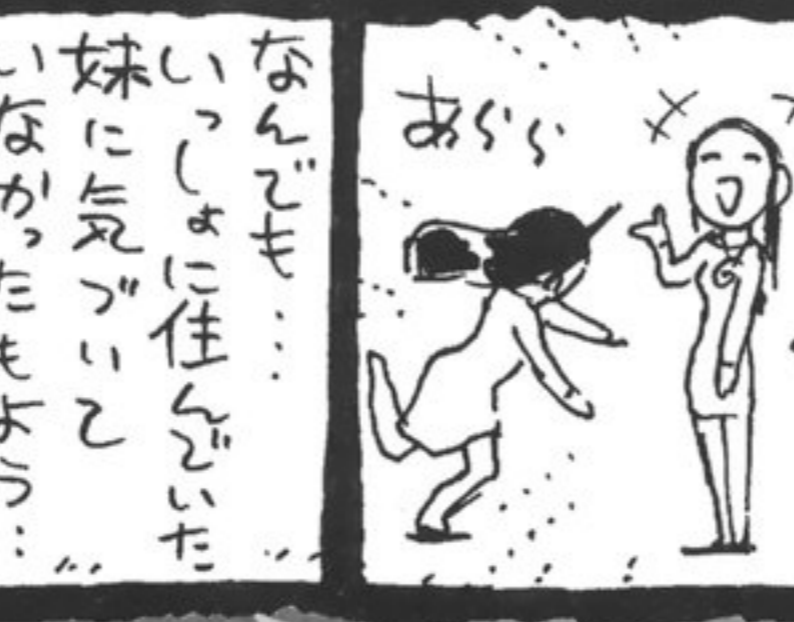 あらら
なんでも…
いっしょに住んでいた
妹に気づいて
いなかったもよう…